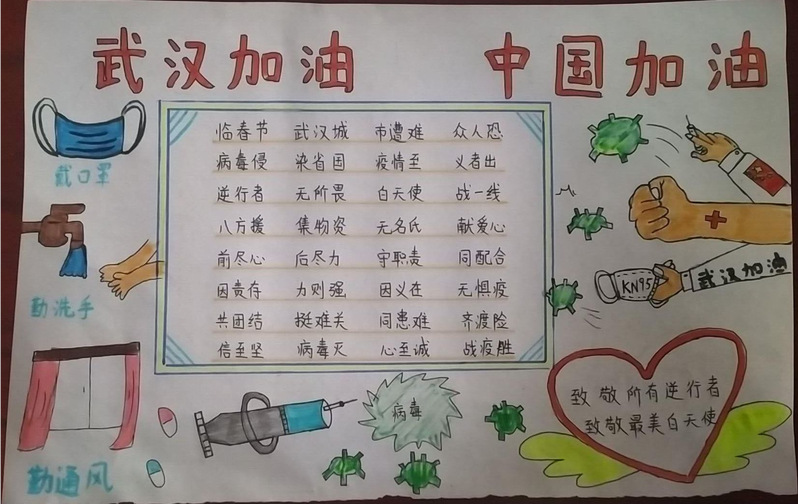 武汉加油 中国加油
戴口罩
勤洗手
勤通风
临春节 武汉城 市遭难 众人恐
病毒侵 染省国 疫情至 义者出
逆行者 无所畏 白天使 战一线
八方援 集物资 无名氏 献爱心
前尽心 后尽力 守职责 同配合
因责存 力则强 因义在 无惧疫
共团结 挺难关 同患难 齐渡险
信至坚 病毒灭 心至诚 战疫胜
KN95
武汉加油
病毒
致敬所有逆行者
致敬最美白天使